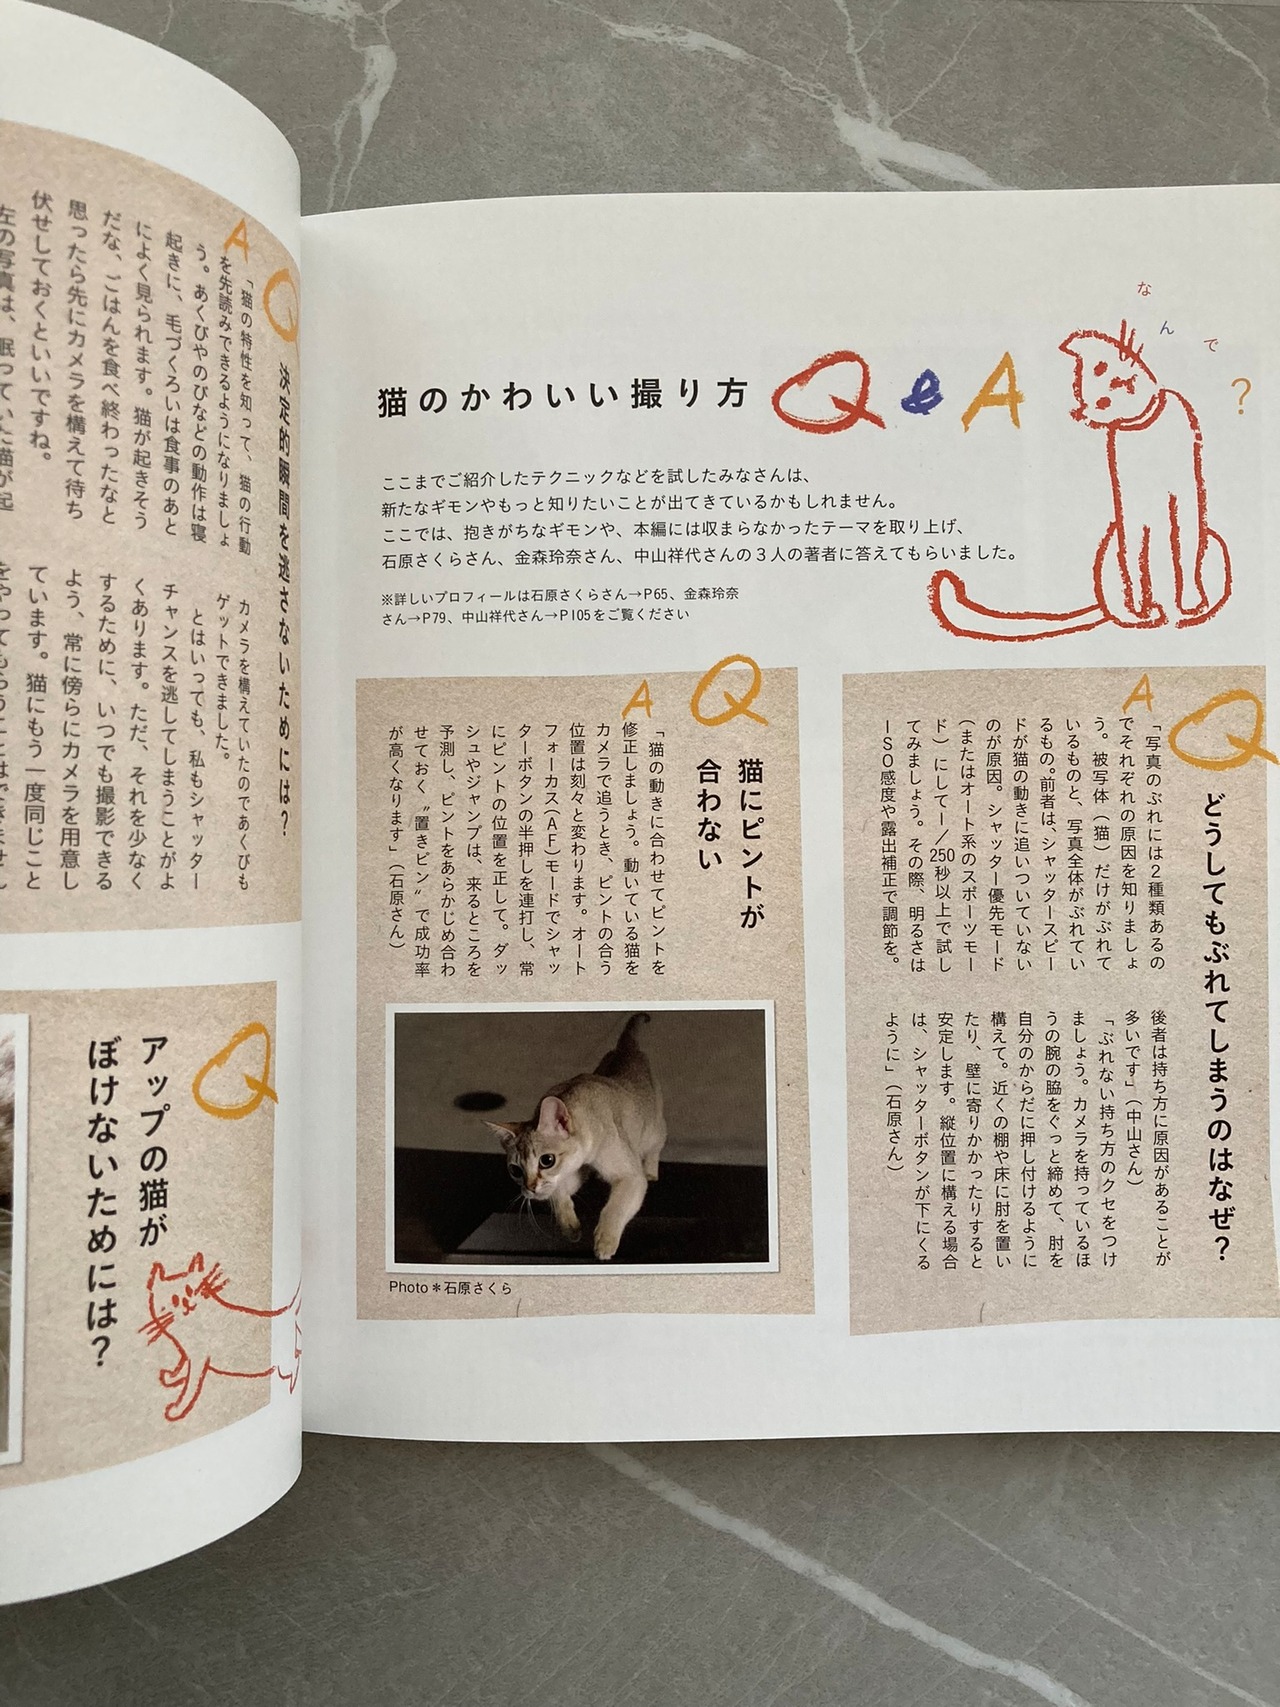 猫のかわいい撮り方
Q & A
な
ん
で
?
ここまでご紹介したテクニックなどを試したみなさんは、
新たなギモンやもっと知りたいことが出てきているかもしれません。
ここでは、抱きがちなギモンや、本編には収まらなかったテーマを取り上げ、
石原さくらさん、金森玲奈さん、中山祥代さんの3人の著者に答えてもらいました。
※詳しいプロフィールは石原さくらさん→P65、金森玲奈
さん→P79、中山祥代さん→P105をご覧ください
Q
どうしてもぶれてしまうのはなぜ?
A
「写真のぶれには2種類あるの
でそれぞれの原因を知りましょ
う。被写体(猫)だけがぶれて
いるものと、写真全体がぶれてい
るもの。前者は、シャッタースピー
ドが猫の動きに追いついていない
のが原因。シャッター優先モード
(またはオート系のスポーツモー
ド)にして1/250秒以上で試し
てみましょう。その際、明るさは
ISO感度や露出補正で調節を。
後者は持ち方に原因があることが
多いです」(中山さん)
「ぶれない持ち方のクセをつけ
ましょう。カメラを持っているほ
うの腕の脇をぐっと締めて、肘を
自分のからだに押し付けるように
構えて。近くの棚や床に肘を置い
たり、壁に寄りかかったりすると
安定します。縦位置に構える場合
は、シャッターボタンが下にくる
ように」(石原さん)
Q
猫にピントが
合わない
A
「猫の動きに合わせてピントを
修正しましょう。動いている猫を
カメラで追うとき、ピントの合う
位置は刻々と変わります。オート
フォーカス(AF)モードでシャッ
ターボタンの半押しを連打し、常
にピントの位置を正して。ダッ
シュやジャンプは、来るところを
予測し、ピントをあらかじめ合わ
せておく〝置きピン〟で成功率
が高くなります」(石原さん)
Photo＊石原さくら
Q
決定的瞬間を逃さないためには?
A
「猫の特性を知って、猫の行動
を先読みできるようになりましょ
う。あくびやのびなどの動作は寝
起きに、毛づくろいは食事のあと
によく見られます。猫が起きそう
だな、ごはんを食べ終わったなと
思ったら先にカメラを構えて待ち
伏せしておくといいですね。
左の写真は、眠っていた猫が起
カメラを構えていたのであくびも
ゲットできました。
とはいっても、私もシャッター
チャンスを逃してしまうことがよ
くあります。ただ、それを少なく
するために、いつでも撮影できる
よう、常に傍らにカメラを用意し
ています。猫にもう一度同じこと
をやってもらうことはできません
Q
アップの猫が
ぼけないためには?